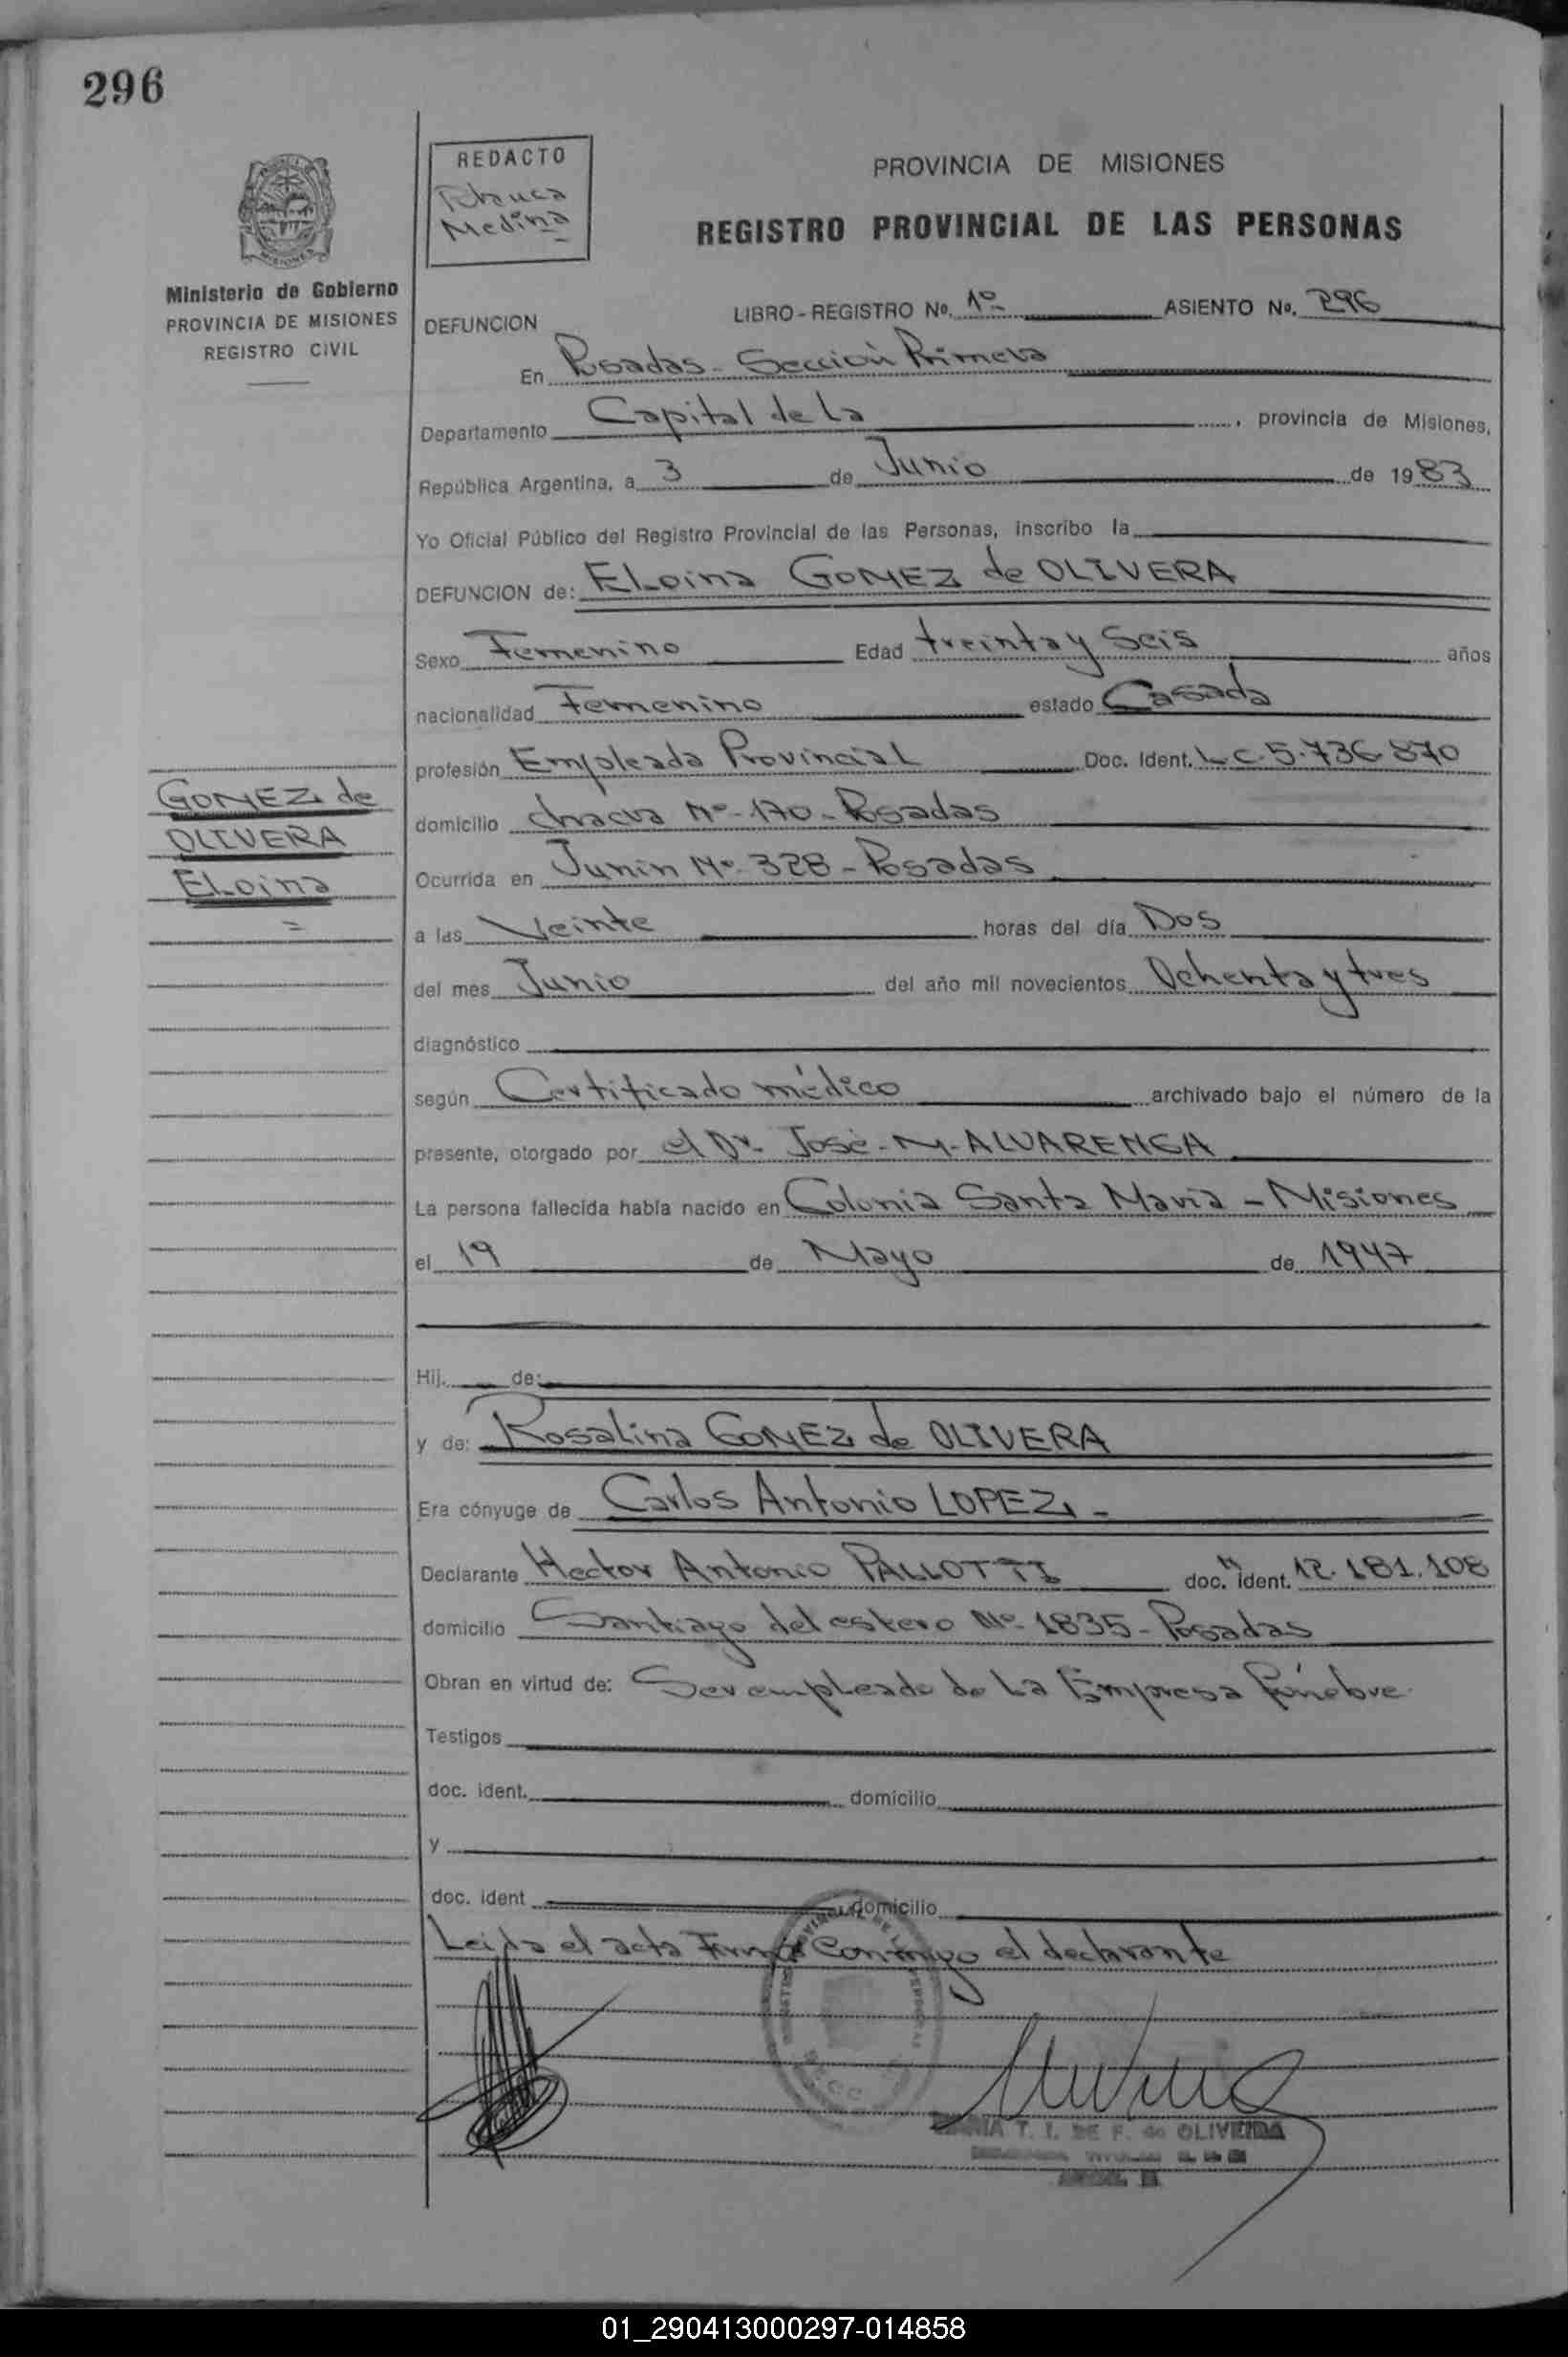 296
REDACTO
Medina
PROVINCIA DE MISIONES
REGISTRO PROVINCIAL DE LAS PERSONAS
Ministerio de Gobierno
PROVINCIA DE MISIONES
REGISTRO CIVIL
MISIONES
DEFUNCION LIBRO-REGISTRO No. 1º ASIENTO No. 296
En Posadas - Sección Primera
Departamento Capital de La, provincia de Misiones,
República Argentina, a 3 de Junio de 1983
Yo Oficial Público del Registro Provincial de las Personas, inscribo la
DEFUNCION de: ELoina GOMEZ de OLIVERA
Sexo Femenino Edad treinta y Seis años
nacionalidad Femenino estado Casada
profesión Empleada Provincial Doc. Ident. L.C. 5.736.870
GOMEZ de
OLIVERA
ELoina
=
domicilio chacra Nº 170 - Posadas
Ocurrida en Junin Nº 328 - Posadas
a las Veinte horas del día Dos
del mes Junio del año mil novecientos Ochenta y tres
diagnóstico
según Certificado médico archivado bajo el número de la
presente, otorgado por el Dr. José - M - ALVARENGA
La persona fallecida había nacido en Colonia Santa María - Misiones
el 19 de Mayo de 1947
Hij. de:
y de: Rosalina GOMEZ de OLIVERA
Era cónyuge de Carlos Antonio LOPEZ -
Declarante Hector Antonio PALLOTTI doc. ident. 12.181.108
domicilio Santiago del estero Nº 1835 - Posadas
Obran en virtud de: Ser empleado de La Empresa fúnebre
Testigos
doc. ident. domicilio
y
doc. ident domicilio
Leida el acta Firma Conmigo el declarante
SECC
T. I. DE F. de OLIVEIRA
01_290413000297-014858